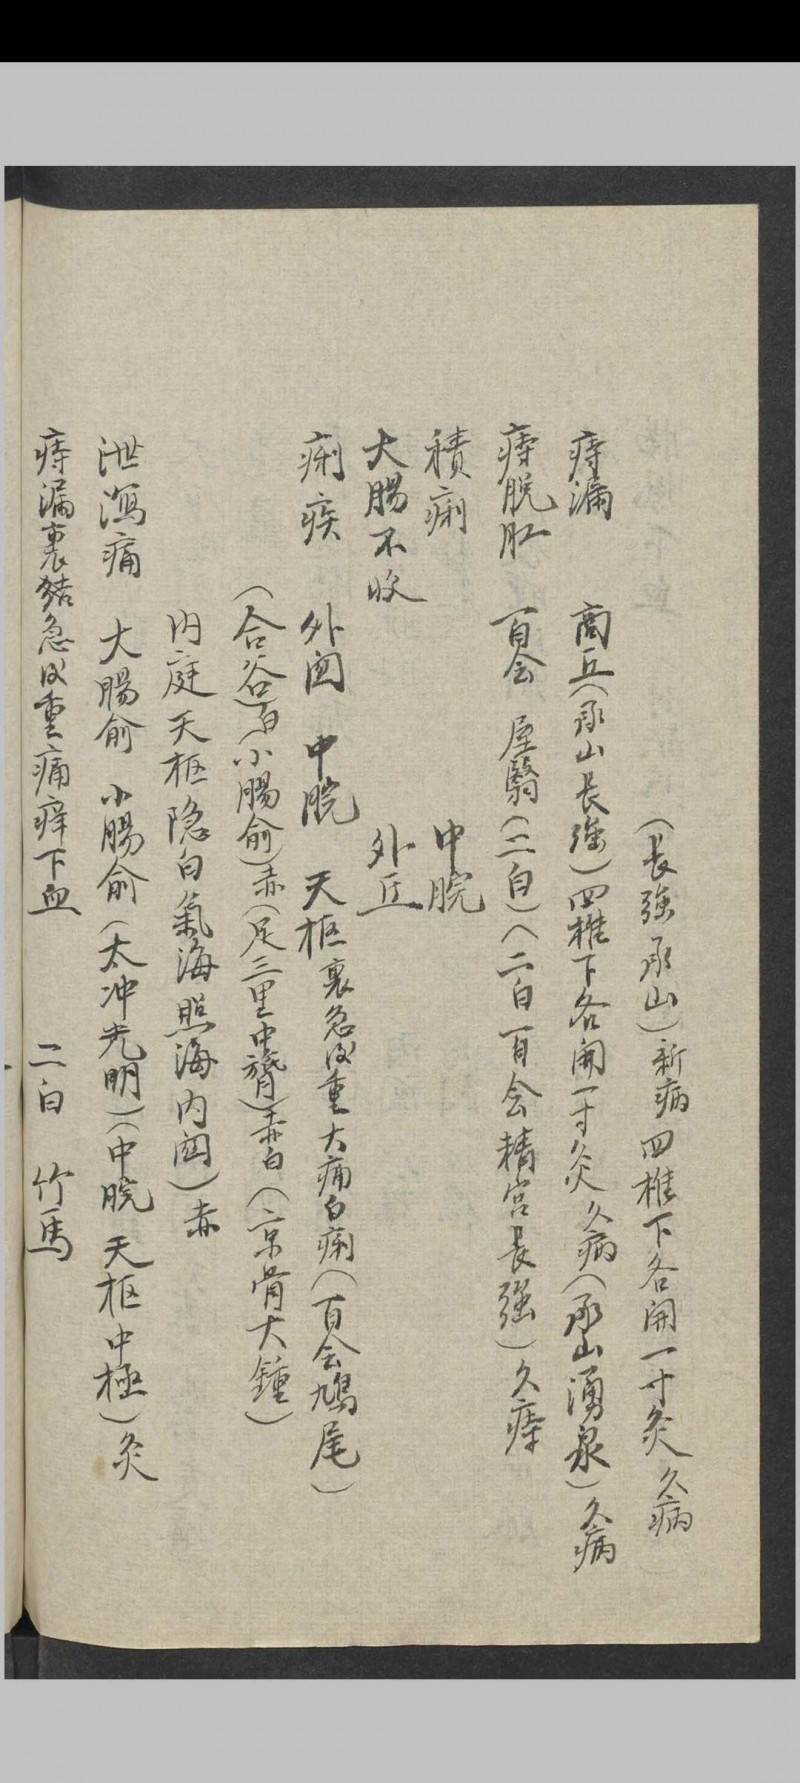 (長強承山)新病 四椎下各開一寸灸 久病
痔漏 商丘(承山長強)四椎下各開一寸灸 久病(承山湧泉)久病
痔脫肛 百会 屋翳(二白)(二白百会精宮長強)久痔
積痢 中脘
大腸不收 外丘
痢疾 外関 中脘 天枢 裏急後重大痛白痢(百会鳩尾)
(合谷)白(小腸俞)赤(足三里中膂)赤白(京骨大鍾)
内庭天枢隐白氣海照海内関)赤
泄瀉痛 大腸俞 小腸俞(太冲光明)(中脘 天枢中極)灸
痔漏裏結急後重痛痒下血 二白 竹馬